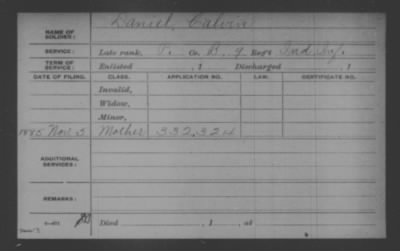 Daniel, Calvin
NAME OF SOLDIER:
SERVICE: Late rank, P. Co. B, 9 Reg't Ind. Inf.
TERM OF SERVICE: Enlisted , 1 Discharged , 1
DATE OF FILING. CLASS. APPLICATION NO. LAW. CERTIFICATE NO.
Invalid,
Widow,
Minor,
1885 Nov. 3 Mother 332,324
ADDITIONAL SERVICES:
REMARKS:
Died , 1 , at